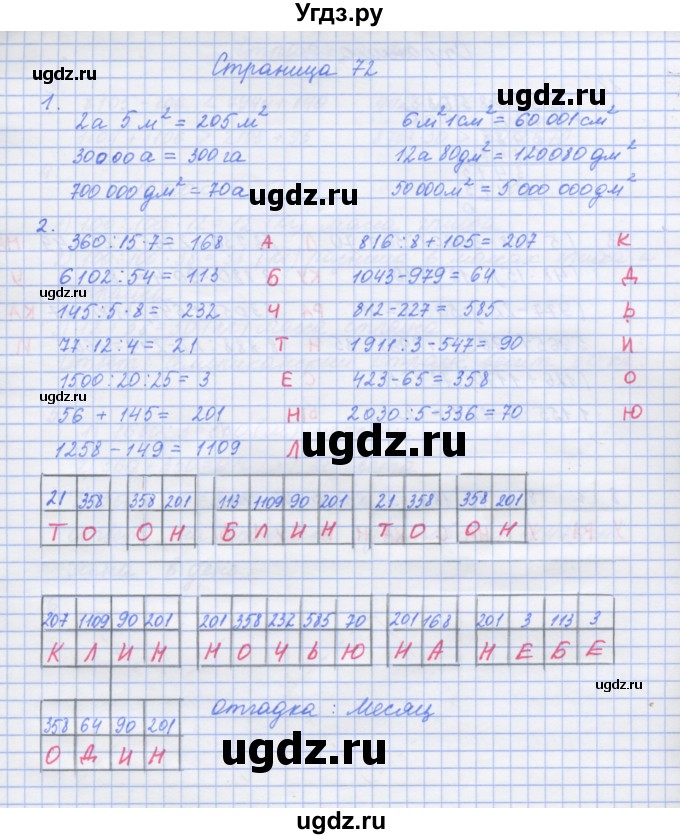 Угдз.ру
Страница 72
1.
2а 5м² = 205м² 6м²1см² = 60 001см²
30000а = 300га 12а 80дм² = 120080дм²
700 000 дм² = 70а 50000м² = 5 000 000дм²
2.
360:15·7 = 168 А 816:8+105 = 207 К
6102:54 = 113 Б 1043-979 = 64 Д
145:5·8 = 232 Ч 812-227 = 585 Ь
77·12:4 = 21 Т 1911:3-547 = 90 И
1500:20:25 = 3 Е 423-65 = 358 О
56 + 145 = 201 Н 2030:5-336 = 70 Ю
1258-149 = 1109 Л
21 358 358 201 113 1109 90 201 21 358 358 201
Т О О Н Б Л И Н Т О О Н
207 1109 90 201 201 358 232 585 70 201 168 201 3 113 3
К Л И Н Н О Ч Ь Ю Н А Н Е Б Е
358 64 90 201 отгадка: Месяц
О Д И Н
ugdz.ru
ugdz.ru
ugdz.ru
ugdz.ru
ugdz.ru
ugdz.ru
ugdz.ru
ugdz.ru
ugdz.ru
ugdz.ru